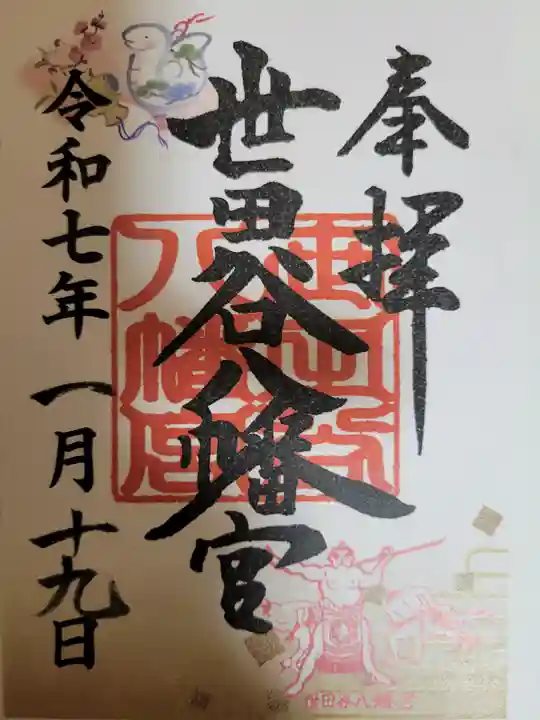 奉拝
世田谷八幡宮
令和七年一月十九日
世田谷八幡宮
世田谷八幡宮